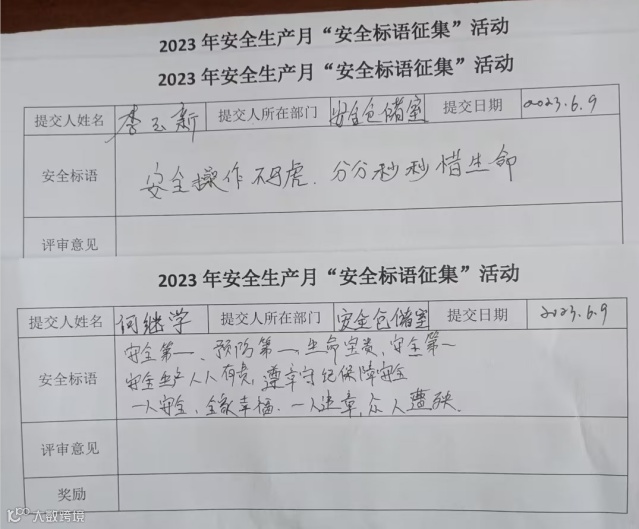 2023 年安全生产月“安全标语征集”活动
2023 年安全生产月“安全标语征集”活动
提交人姓名 李玉新 提交人所在部门 安全仓储室 提交日期 2023.6.9
安全标语 安全操作不马虎.分分秒秒惜生命
评审意见
2023 年安全生产月“安全标语征集”活动
提交人姓名 何继学 提交人所在部门 安全仓储室 提交日期 2023.6.9
安全第一、预防第一、生命宝贵,安全第一
安全标语 安全生产人人有责,遵章守纪保障安全
一人安全,全家幸福.一人违章,众人遭殃.
评审意见
奖励
大数跨境